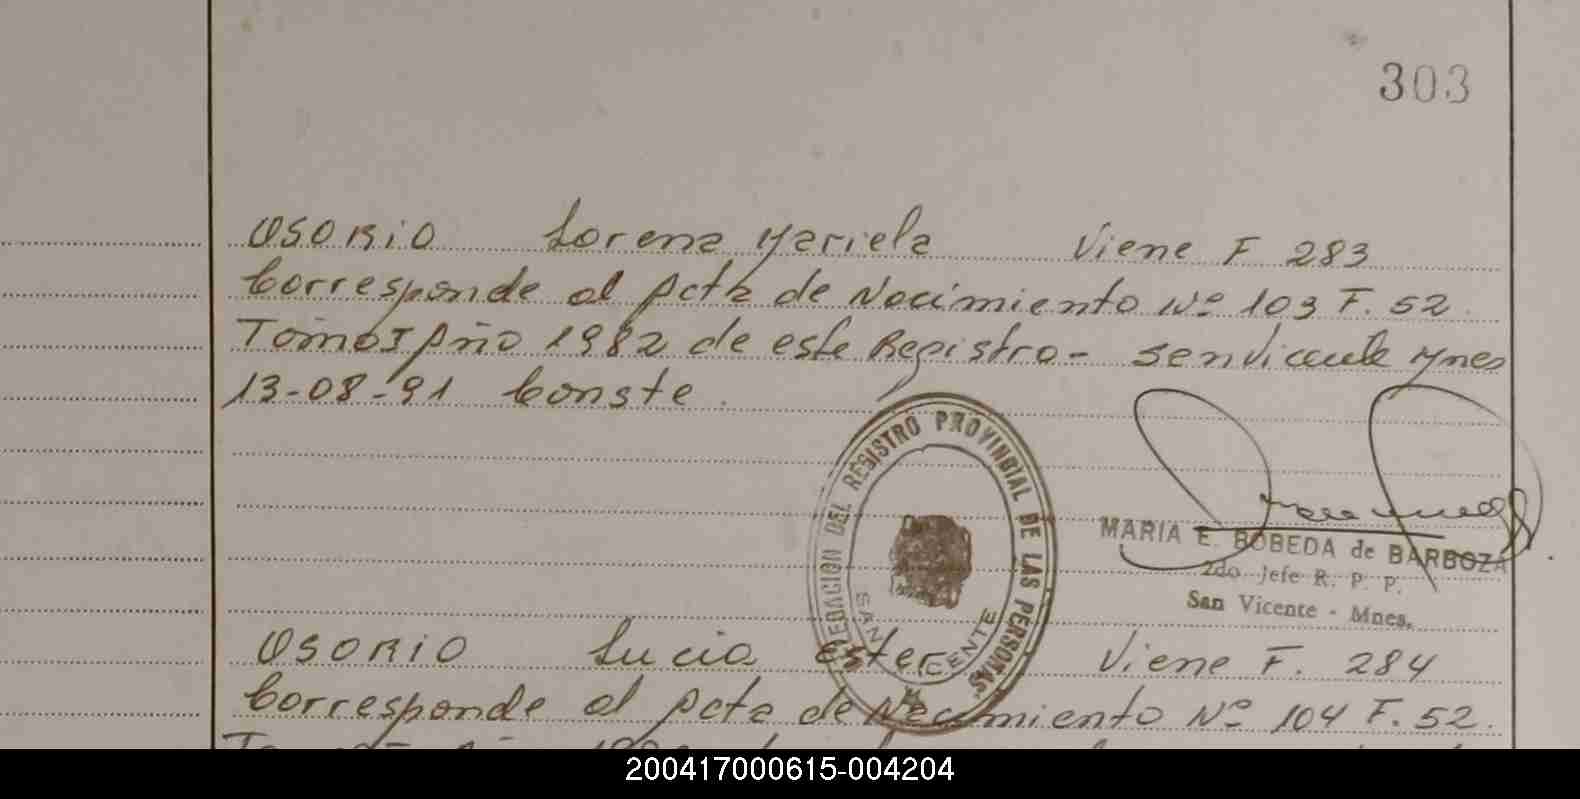 303
OSORIO Lorena Mariela Viene F 283
Corresponde al Acta de Nacimiento Nº 103 F. 52.
Tomo I Año 1982 de este Registro - San Vicente Mnes
13-08-91 Conste.
DELEGACION DEL REGISTRO PROVINCIAL DE LAS PERSONAS
SAN VICENTE
MARIA E. BOBEDA de BARBOZA
2do Jefe R. P. P.
San Vicente - Mnes.
OSORIO Lucia Ester Viene F. 284
Corresponde al Acta de Nacimiento Nº 104 F. 52.
200417000615-004204